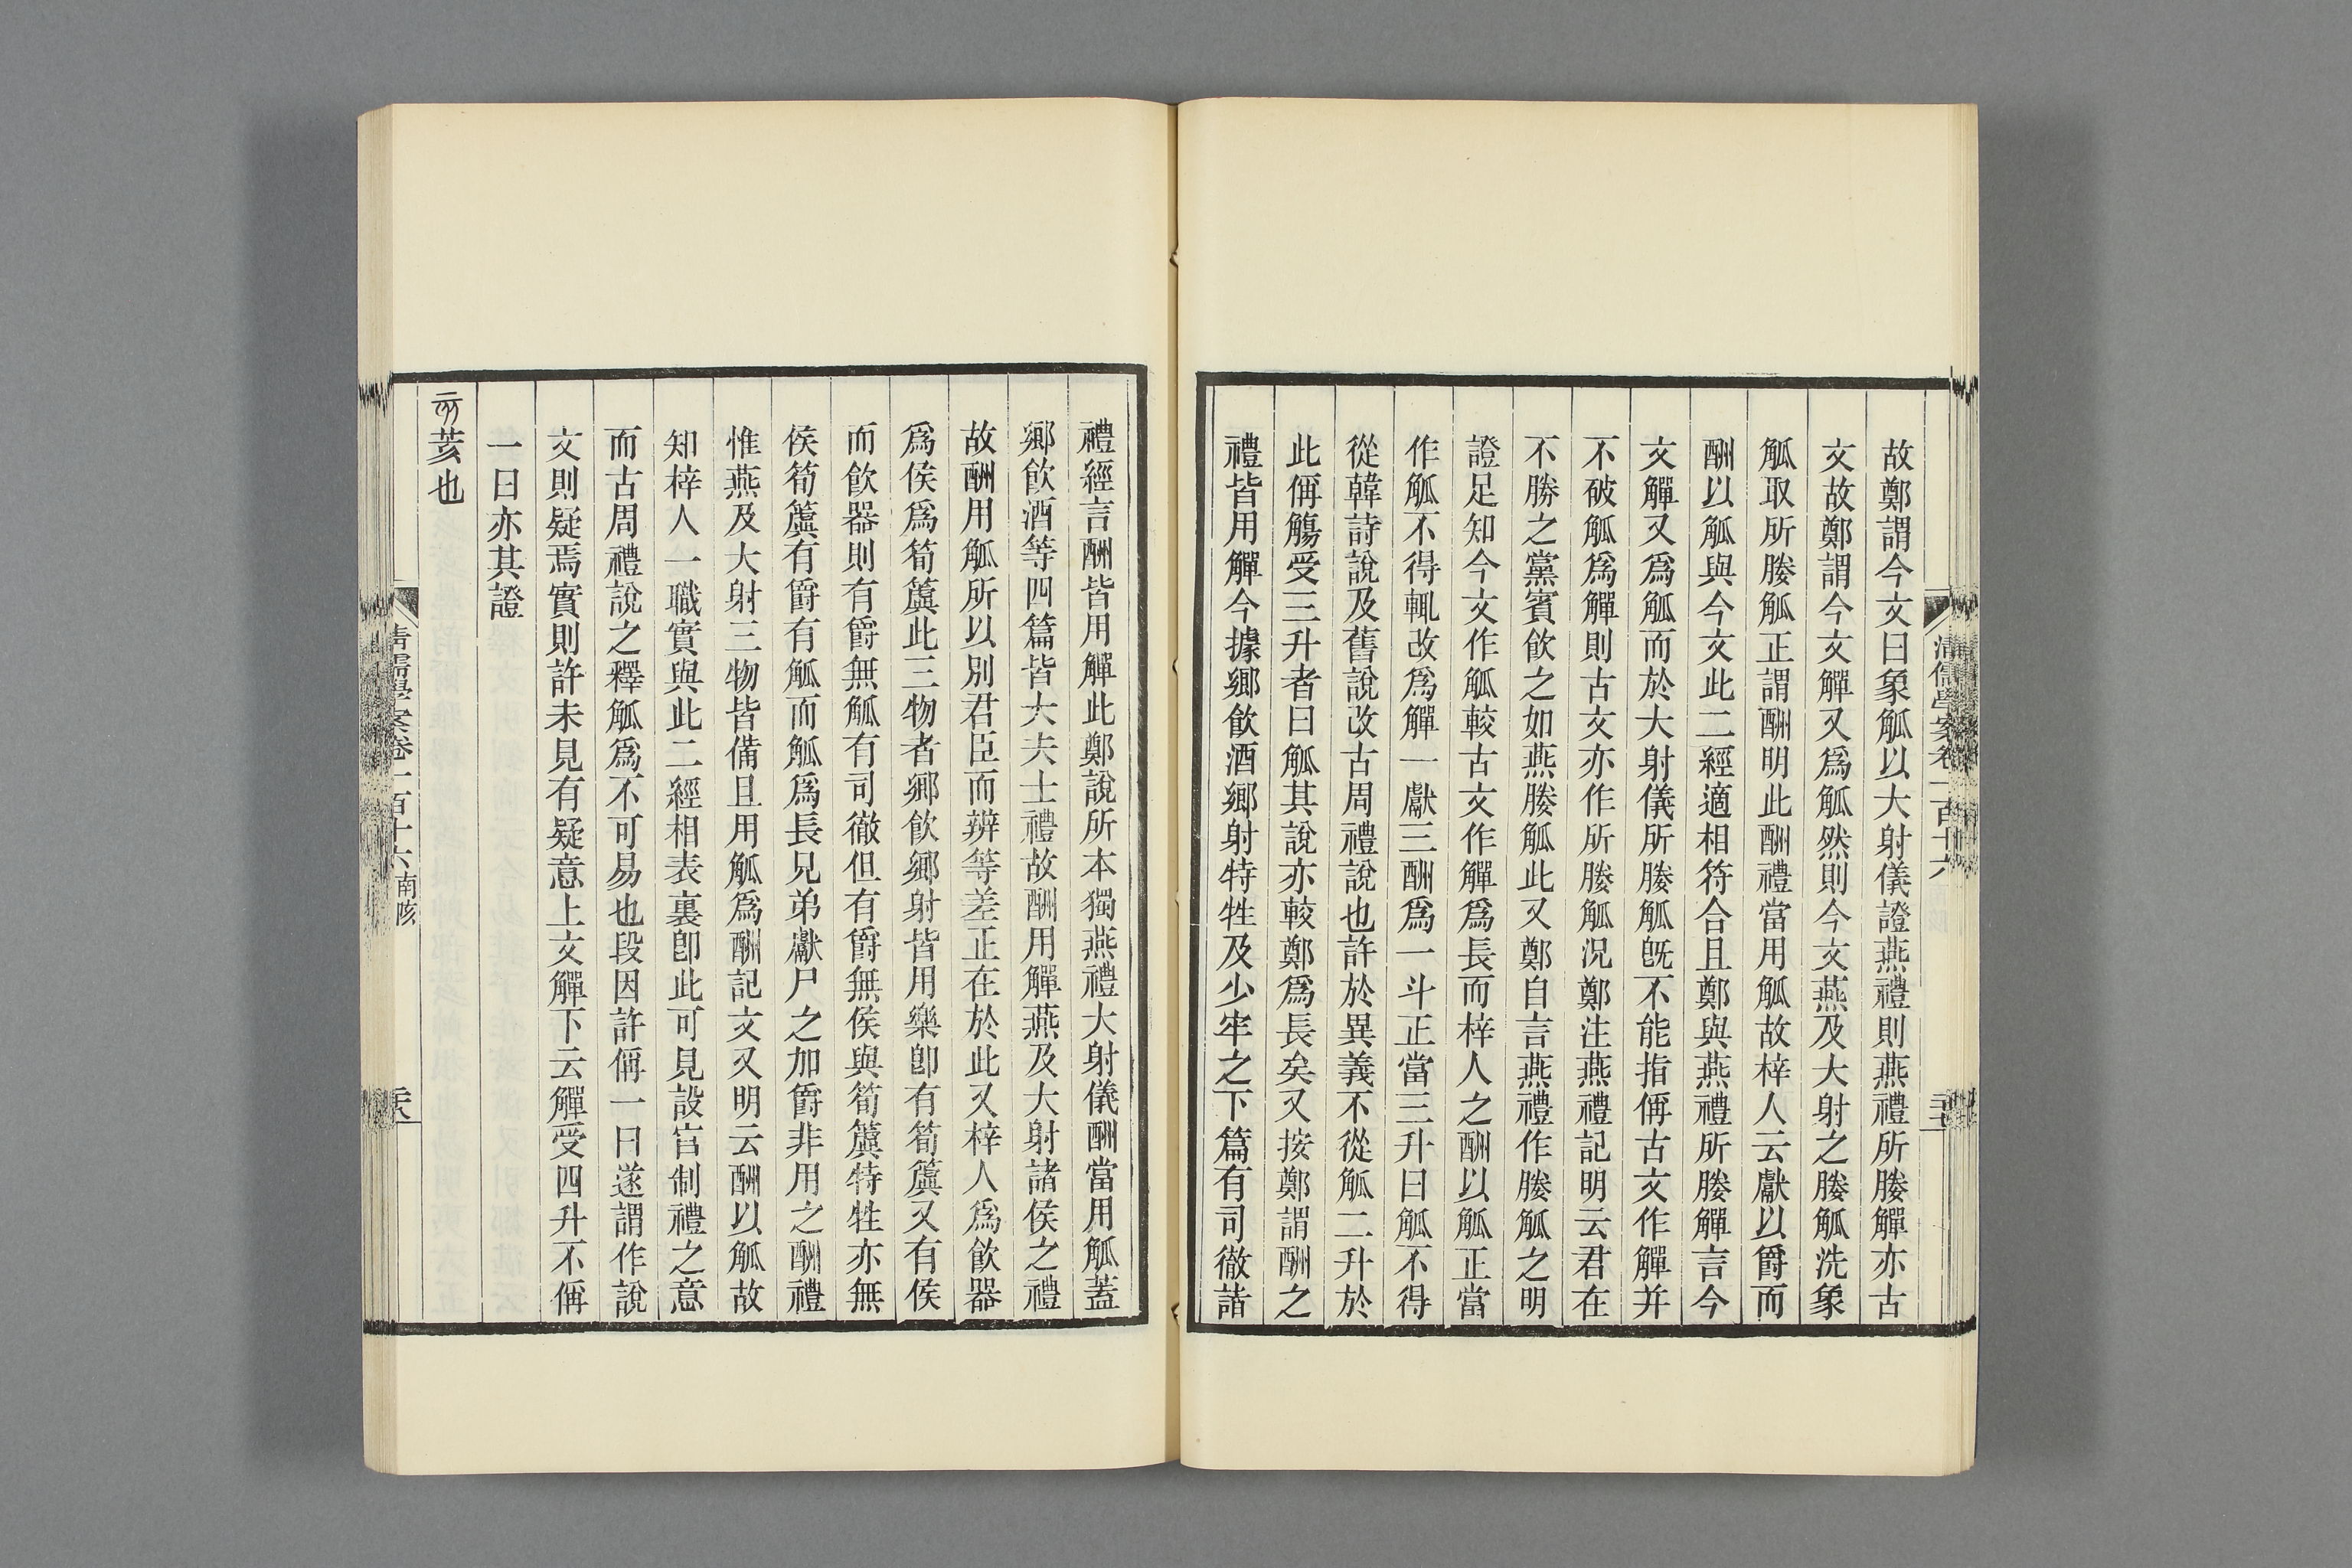 故鄭謂今文曰象觚以大射儀證燕禮則燕禮所媵觶亦古
文故鄭謂今文觶又爲觚然則今文燕及大射之媵觚洗象
觚取所媵觚正謂酬明此酬禮當用觚故梓人云獻以爵而
酬以觚與今文此二經適相符合且鄭與燕禮所媵觶言今
文觶又爲觚而於大射儀所媵觚旣不能指偁古文作觶并
不破觚爲觶則古文亦作所媵觚況鄭注燕禮記明云君在
不勝之黨賓飮之如燕媵觚此又鄭自言燕禮作媵觚之明
證足知今文作觚較古文作觶爲長而梓人之酬以觚正當
作觚不得輒改爲觶一獻三酬爲一斗正當三升曰觚不得
從韓詩說及舊說改古周禮說也許於異義不從觚二升於
此偁觴受三升者曰觚其說亦較鄭爲長矣又按鄭謂酬之
禮皆用觶今據鄕飮酒鄕射特牲及少牢之下篇有司徹諸
禮經言酬皆用觶此鄭說所本獨燕禮大射儀酬當用觚蓋
鄕飮酒等四篇皆大夫士禮故酬用觶燕及大射諸侯之禮
故酬用觚所以別君臣而辨等差正在於此又梓人爲飮器
爲侯爲筍簴此三物者鄕飮鄕射皆用樂卽有筍簴又有侯
而飮器則有爵無觚有司徹但有爵無侯與筍簴特牲亦無
侯筍簴有爵有觚而觚爲長兄弟獻尸之加爵非用之酬禮
惟燕及大射三物皆備且用觚爲酬記文又明云酬以觚故
知梓人一職實與此二經相表裏卽此可見設官制禮之意
而古周禮說之釋觚爲不可易也段因許偁一曰遂謂作說
文則疑焉實則許未見有疑意上文觶下云觶受四升不偁
一曰亦其證
荄也
清儒學案卷一百十六 南陔